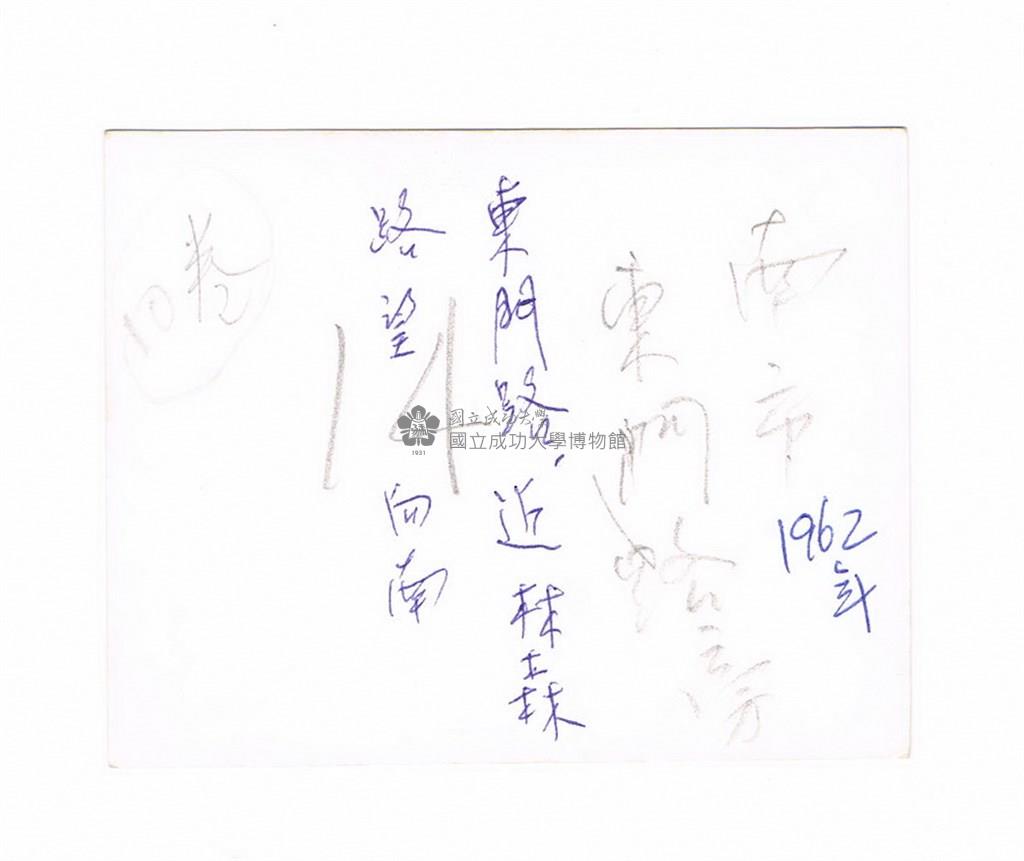 南市
1962年
東門路
東門路，近林森
路望 向南
14
國立成功大學
國立成功大學博物館
1931